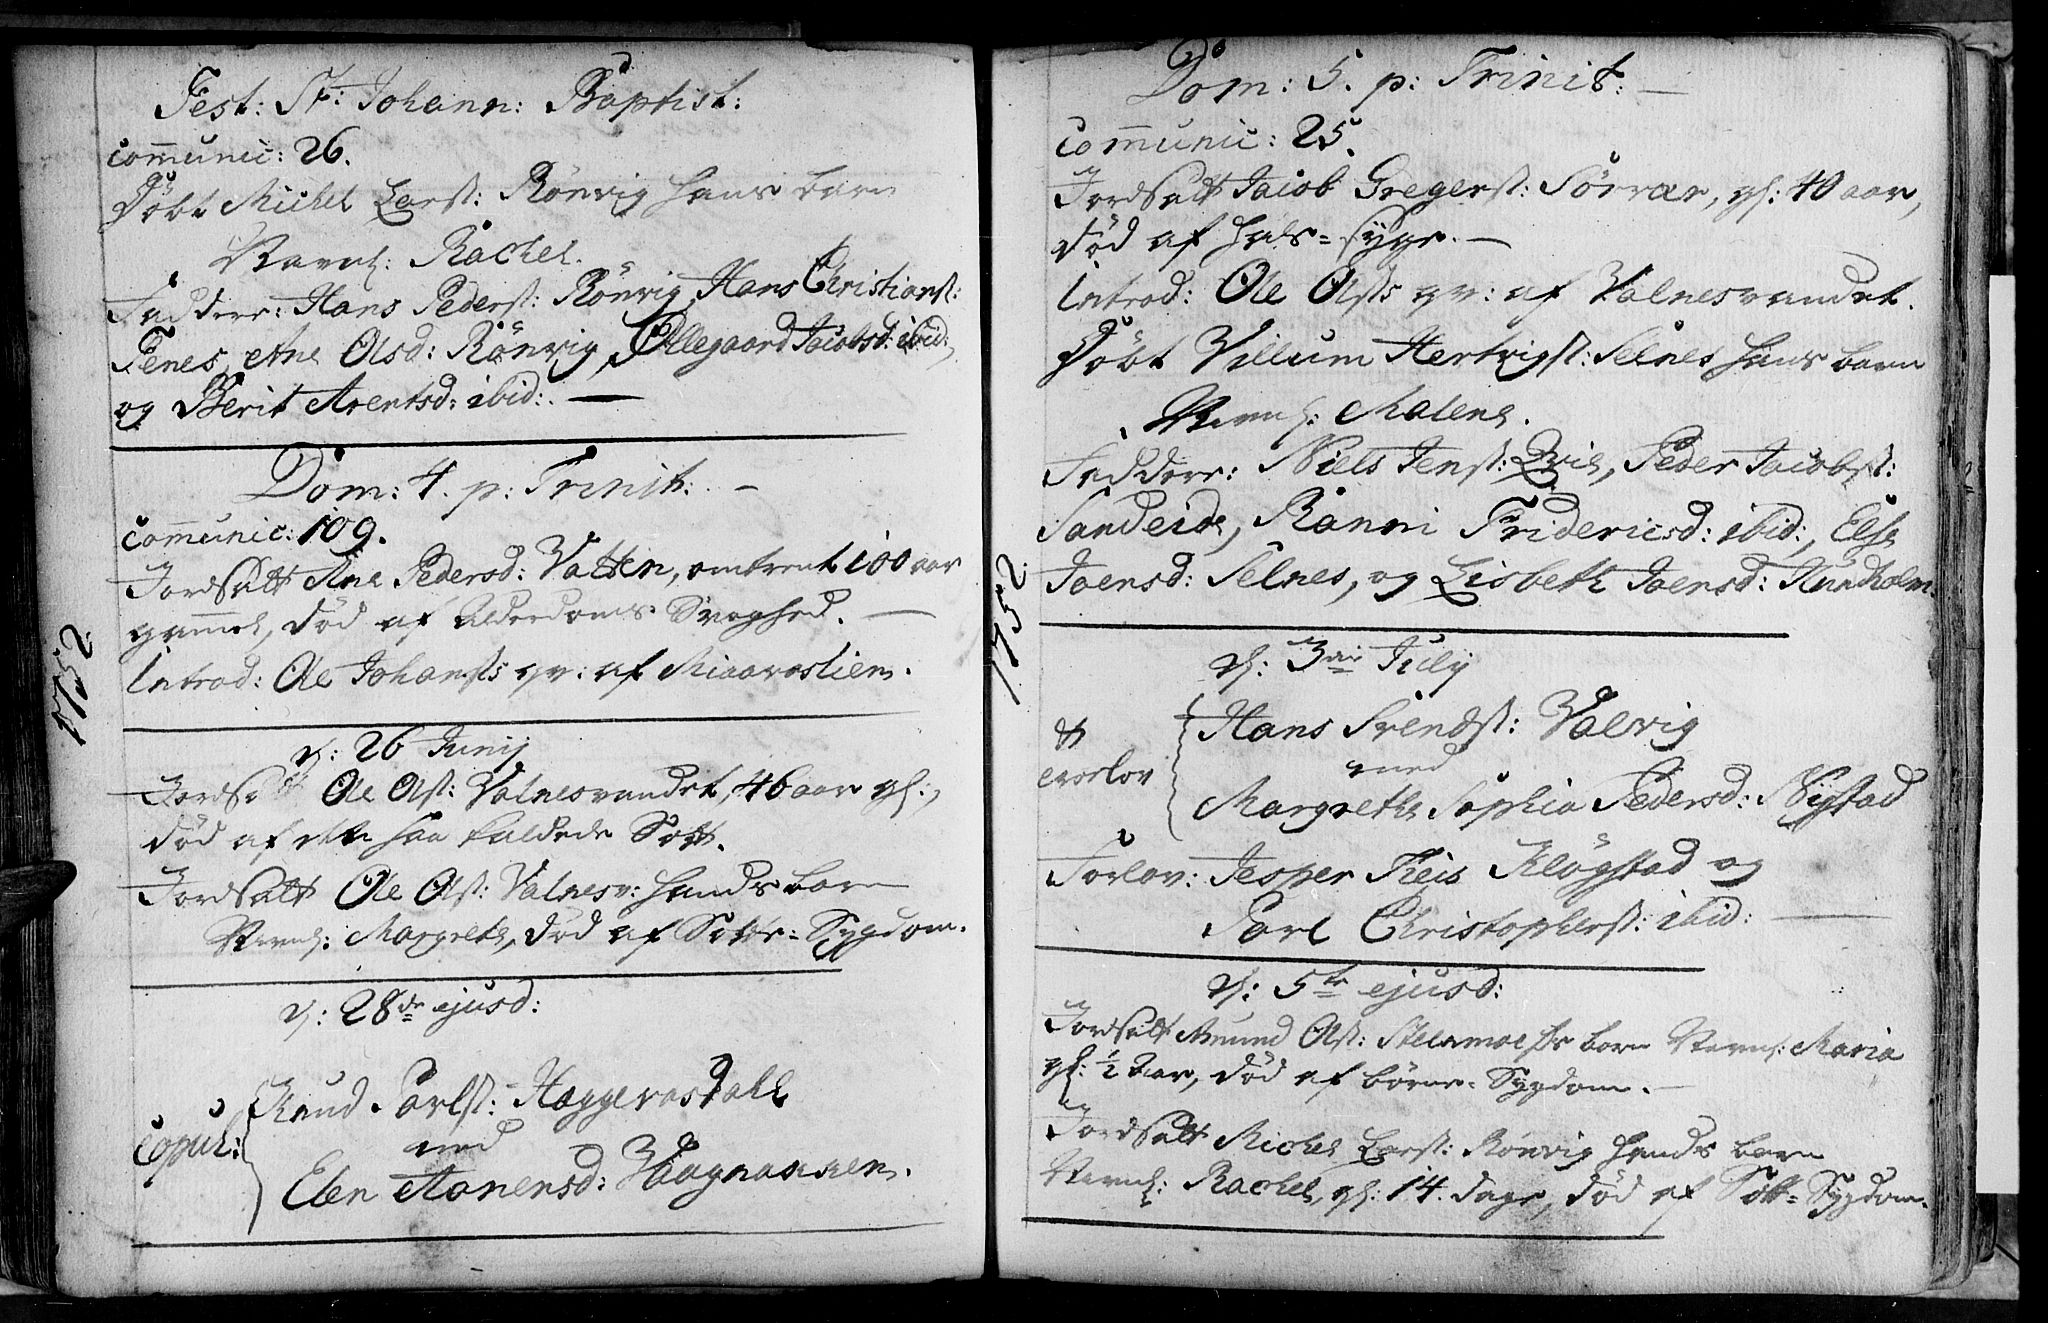 Fest: St: Johann: Baptist:
Communic: 26.
Döbt Michel Larst: Rönvig hans barn
Navnl: Rachel.
Faddere: Hans Pederst: Rönvig, Hans Christianst:
Fenes, Ane Olsd: Rönvig, Ollegaard Jacobsd: ibid:,
og Berit Arentsd: ibid:. —
Dom: 4. p: Trinit: . —
Communic: 109.
Jordsatt Ane Pedersd: Vatten, omtrent 100 aar
gammel, död af Alderdoms Svaghed. —
Introd: Ole Johansts qv: af
d: 26 Junij
Jordsatt Ole Olst: Valnesvandet, 46 aar gl:,
död af den saa kaldede Sott.
Jordsatt Ole Olst: Valnesv: hands barn
Navnl: Margrethe, död af Sotte-Sygdom.
d: 28de ejusd:
Knud Parlst: Haggeraasdahl
Copul: med
Elen Aanensd:
1752.
Dom: 5. p: Trinit: —
Communic: 25.
Jordsatt Jacob Gregerst: Sörvær, gl: 40 aar,
död af Hals-syge. —
Introd: Ole Olsts qv: af Valnesvandet.
Döbt Villum Hertvigst: Selnes hans barn
Navnl: Malene.
Faddere: Niels Jenst: Qvie, Peder Jacobst:
Sandeide, Ranni Fridericsd: ibid:, Else
Joensd: Selnes, og Lisbeth Joensd: Hundholm.
1752.
d: 3die July
Hans Svendst: Valvig
med
Trorlov
Margrethe Sophia Pedersd: Nigstad
Forlov: Jesper Heis Klögstad og
Parl Christopherst: ibid: —
d: 5te ejusd:
Jordsatt Amund Olst: barn Navnl: Maria
gl: 1/2 aar, död af börne-Sygdom. —
Jordsatt Michel Larst: Rönvig hands barn
Navnl: Rachel, gl: 14. dage, död af Sott-Sygdom.